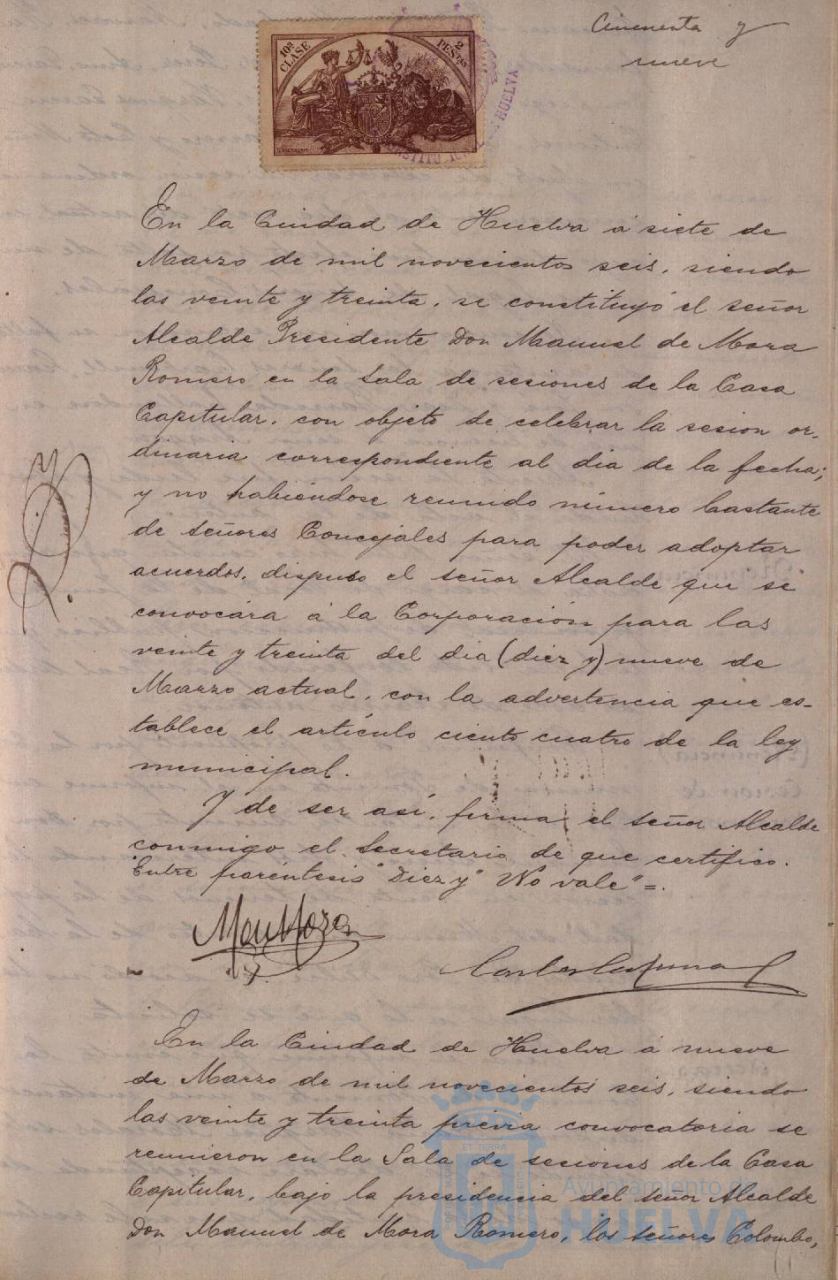 Cincuenta y
nueve
10ª CLASE
2 PESETAS
HUELVA
En la Ciudad de Huelva á siete de
Marzo de mil novecientos seis, siendo
las veinte y treinta, se constituyó el señor
Alcalde Presidente Don Manuel de Mora
Romero en la Sala de sesiones de la Casa
Capitular, con objeto de celebrar la sesion or-
dinaria correspondiente al dia de la fecha;
y no habiéndose reunido número bastante
de señores Concejales para poder adoptar
acuerdos, dispuso el señor Alcalde que se
convocára á la Corporación para las
veinte y treinta del dia (diez y) nueve de
Marzo actual, con la advertencia que es-
tablece el artículo ciento cuatro de la ley
municipal.
Y de ser así, firma el señor Alcalde
conmigo el Secretario de que certifico.
"Entre paréntesis" Diez y" No vale"=.
En la Ciudad de Huelva á nueve
de Marzo de mil novecientos seis, siendo
las veinte y treinta previa convocatoria se
reunieron en la Sala de secciones de la Casa
Capitular, bajo la presidencia del señor Alcalde
Don Manuel de Mora Romero, los señores Colombo,
Ayuntamiento de
HUELVA